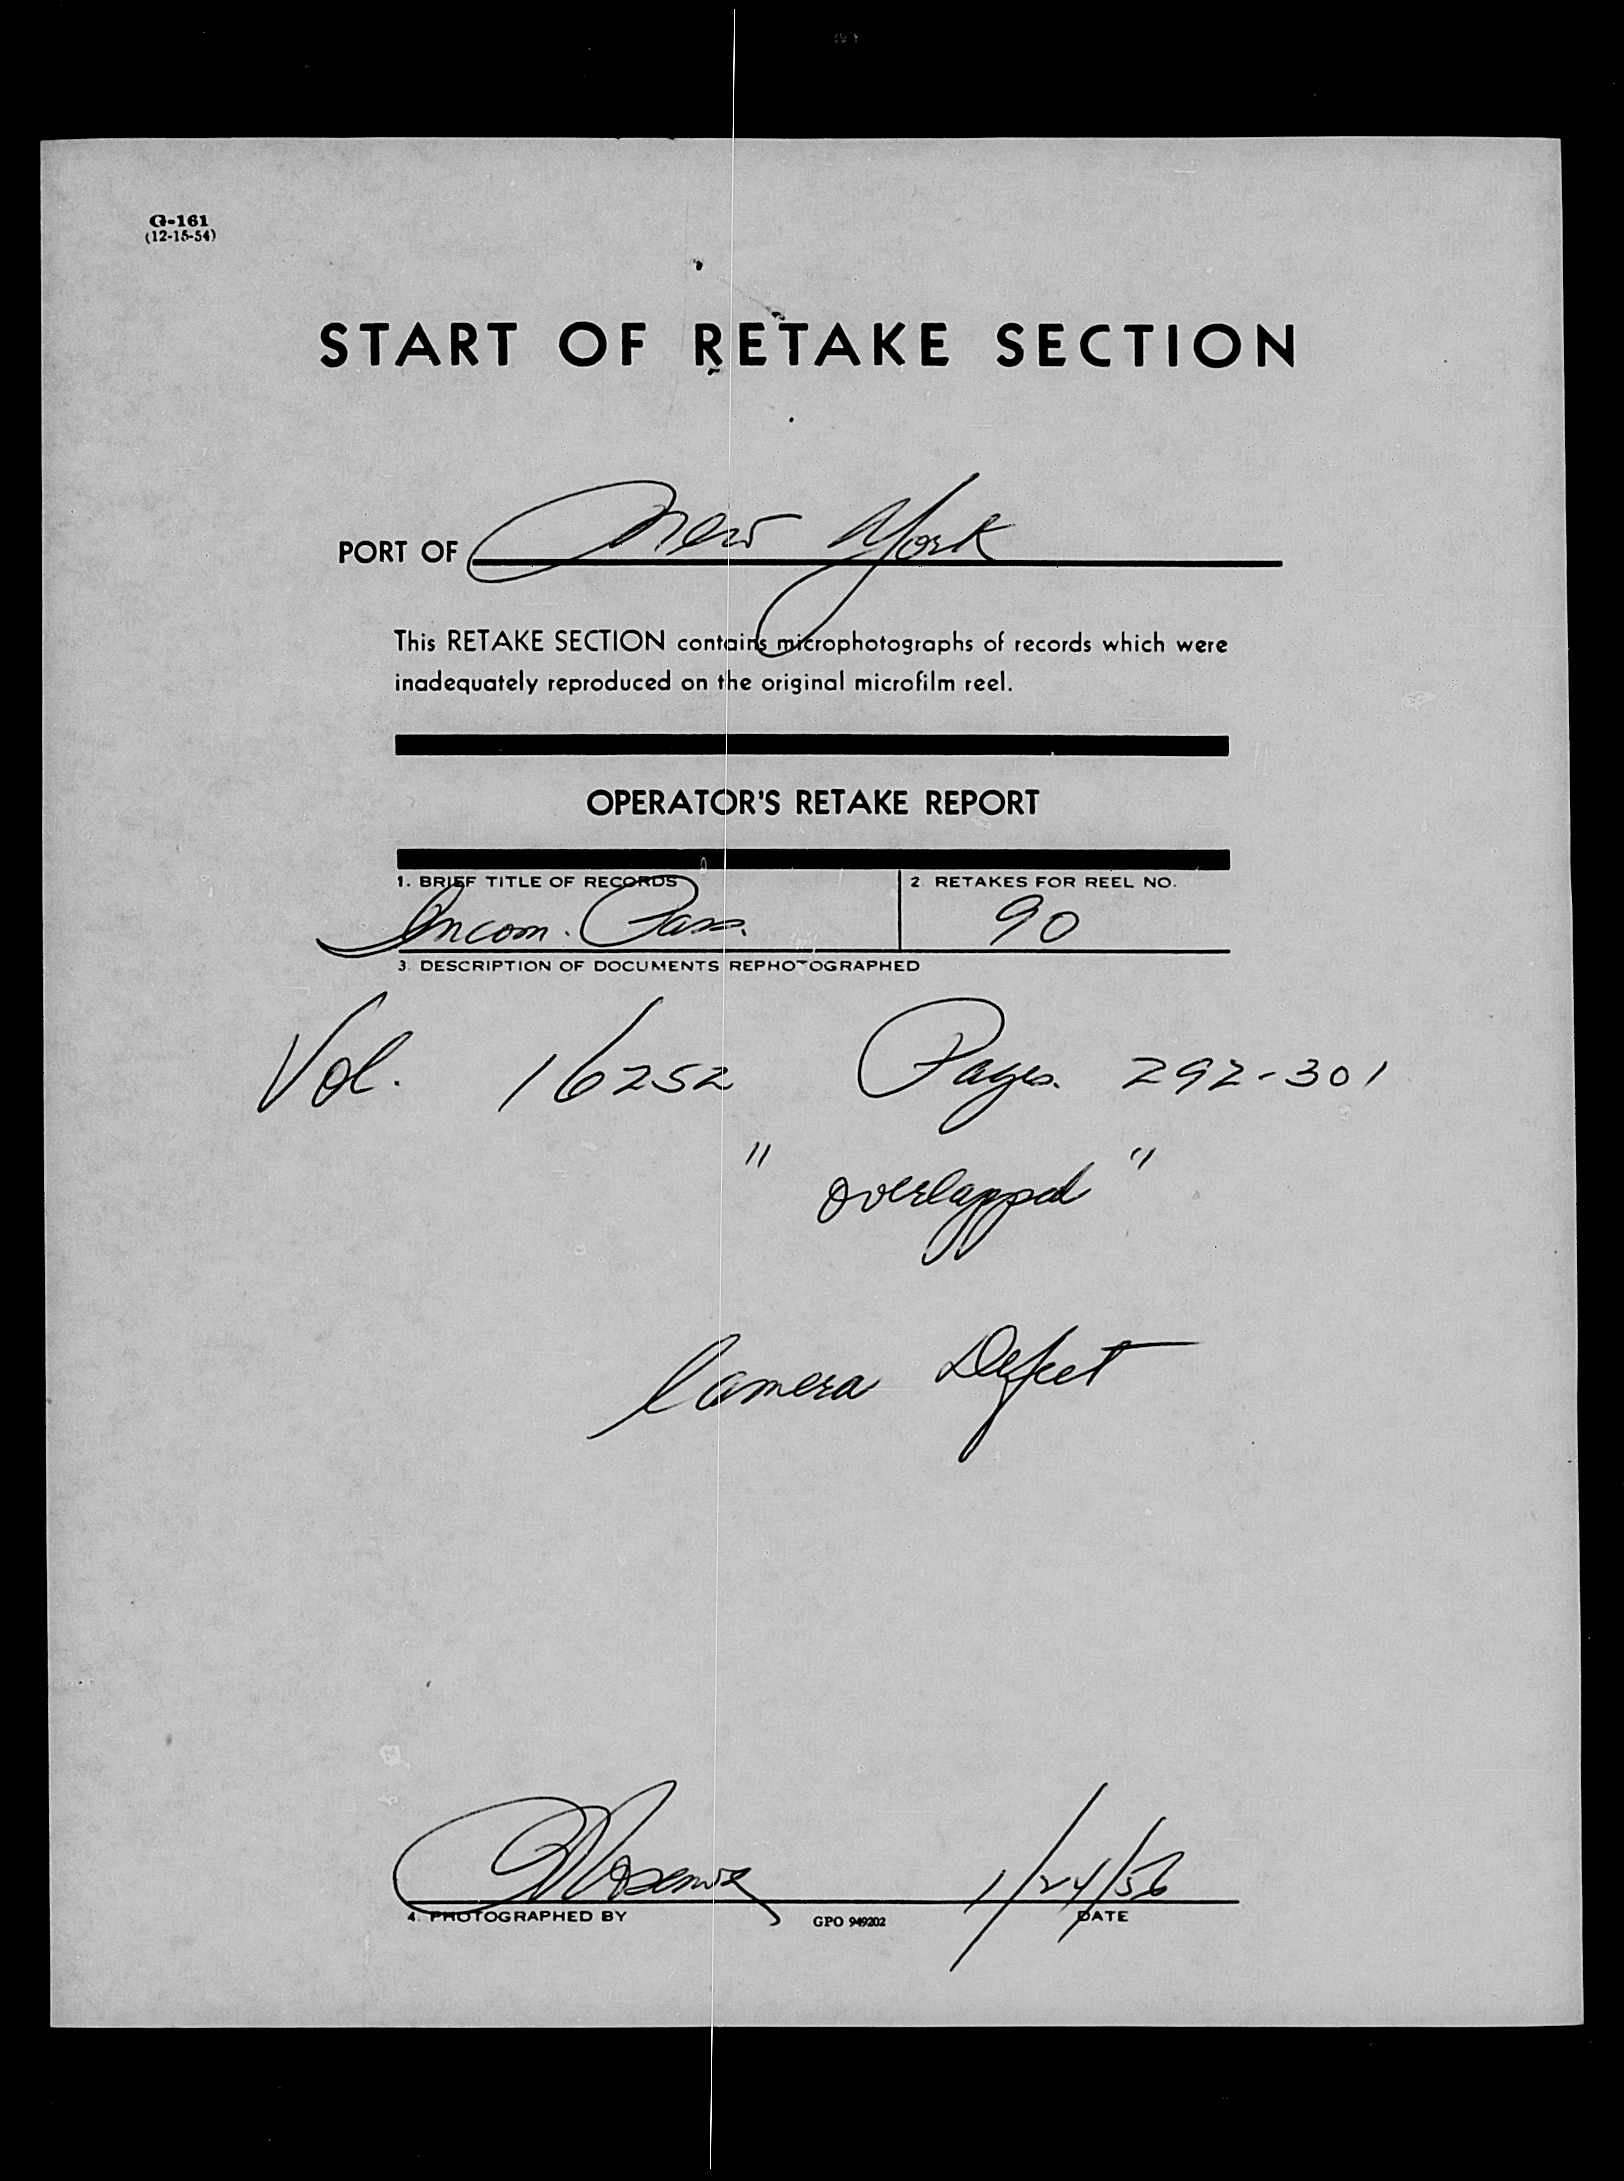 G-161
(12-15-54)
START OF RETAKE SECTION
PORT OF New York
This RETAKE SECTION contains microphotographs of records which were
inadequately reproduced on the original microfilm reel.
OPERATOR'S RETAKE REPORT
1. BRIEF TITLE OF RECORDS 2. RETAKES FOR REEL NO.
Incom. Pass. 90
3. DESCRIPTION OF DOCUMENTS REPHOTOGRAPHED
Vol. 16252 Pages. 292-301
" overlapped "
Camera Defect
1/24/56
4. PHOTOGRAPHED BY GPO 949202 DATE